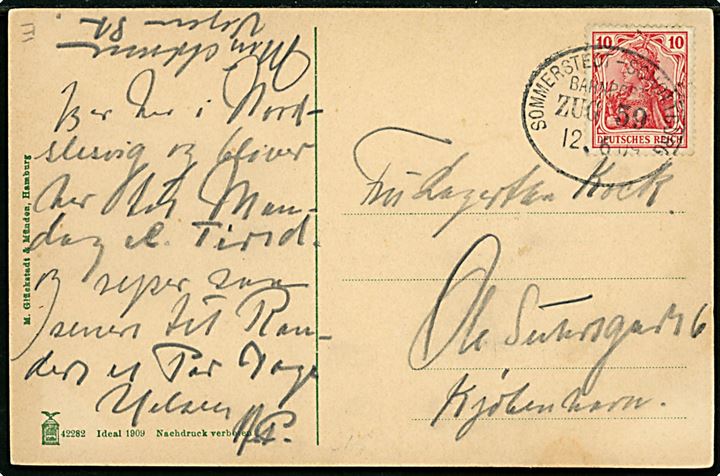 171
Jeg her i Nord-
slesvig og bliver
her til Man-
dag el. Tirsd.
og rejser saa
senere til Ran-
ders et Par Dage
Hilsen
M. Glückstadt & Münden, Hamburg
42282 Ideal 1909 Nachdruck verboten
10 10
DEUTSCHES REICH
SOMMERSTEDT
BAHNPOST
ZUG 59
12.
Fru Lagertha Kock
Ole Suhrsgade 6
Kjöbenhavn.